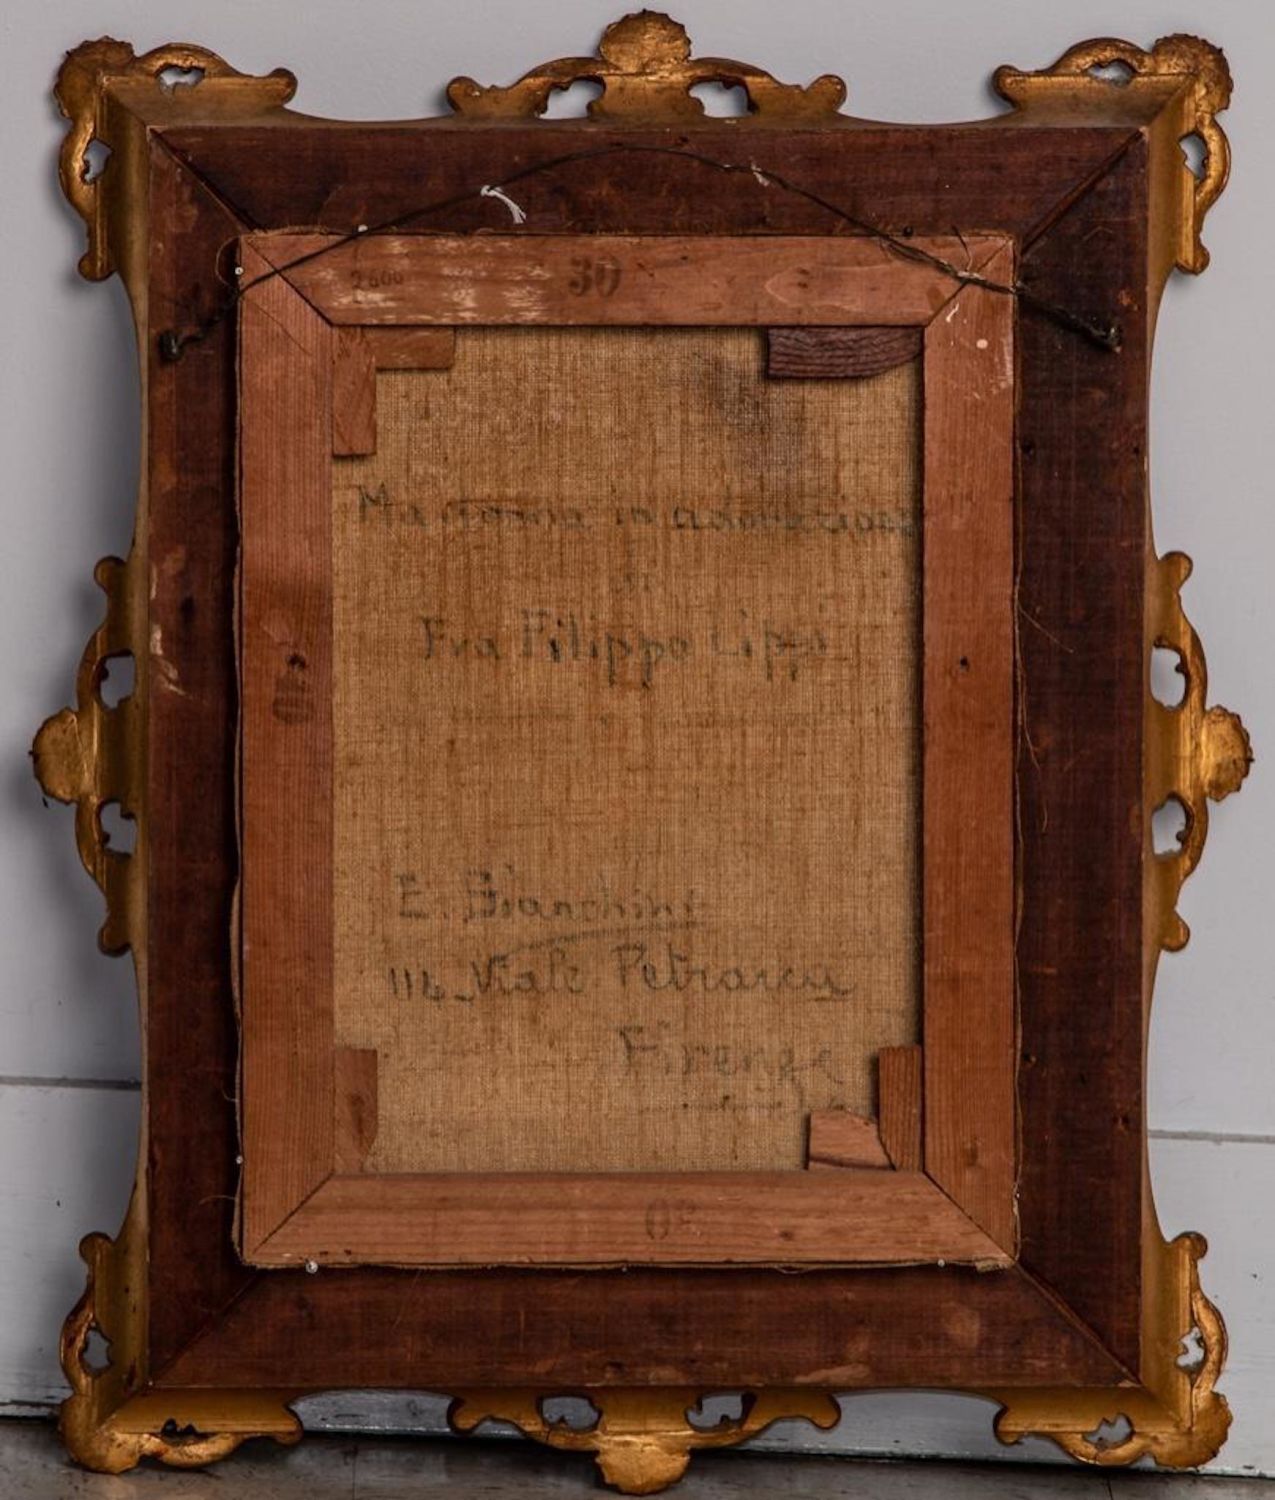 2600 30
Madonna in adorazione
di
Fra Filippo Lippi
E. Bianchini
116 - Viale Petrarca
Firenze
40
30